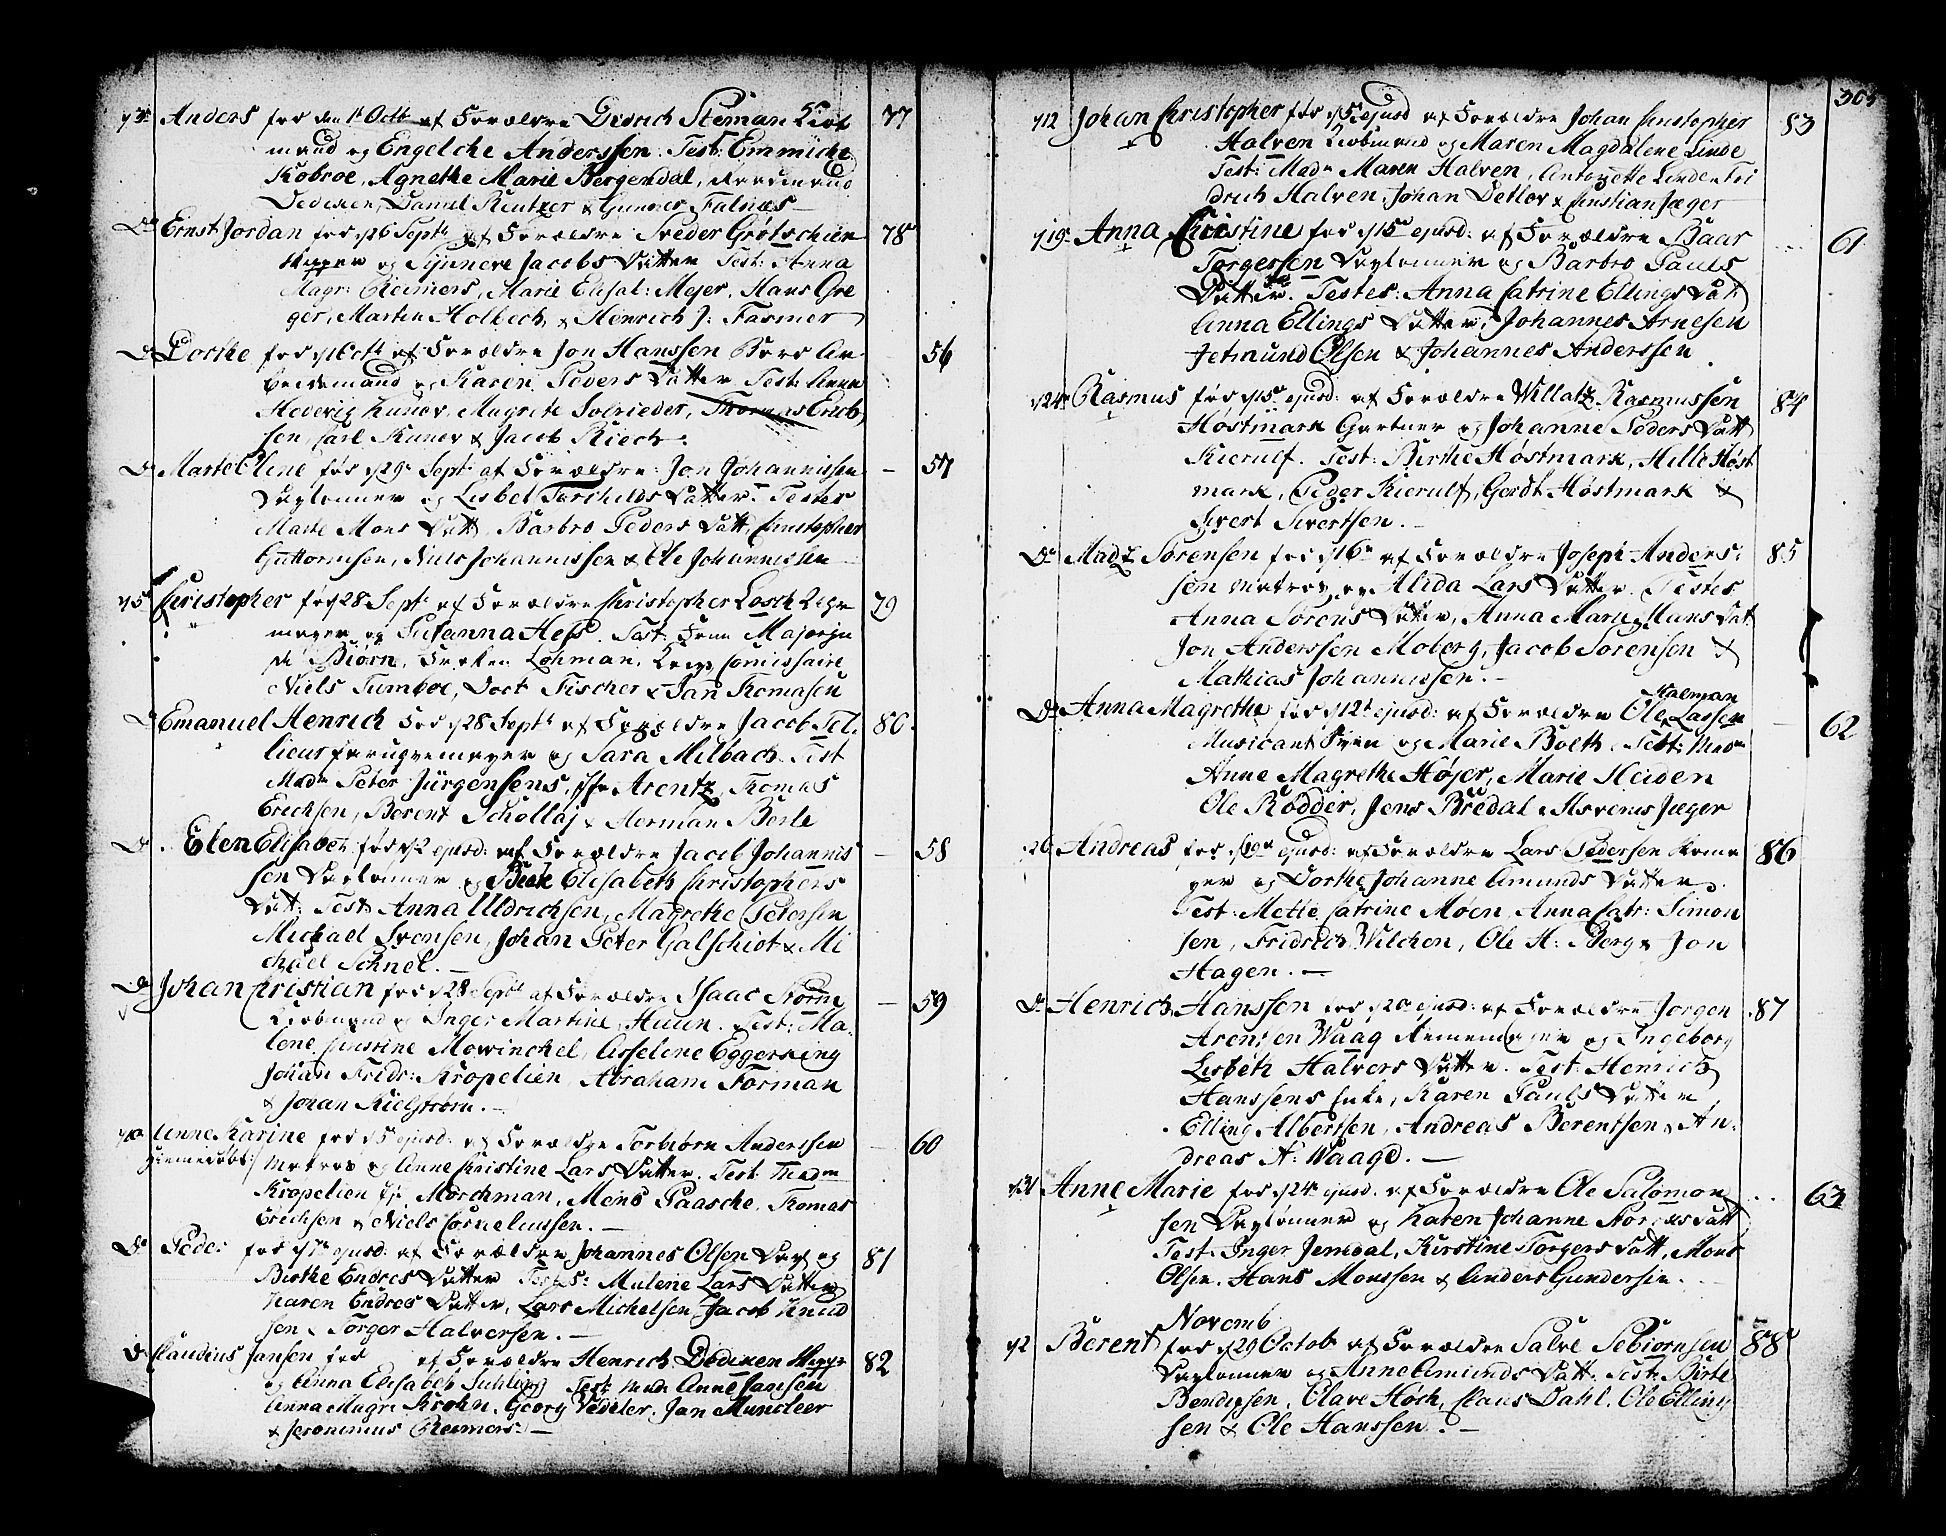 Anders fød den 1 Octb af Forældre Didrich Steman Kiøb 77
mand og Engelche Anderssen. Test: Emmiche
Kobroe, Agnethe Marie Bergendal,
Dedeken, Daniel Kentzer & Gunner Falnæs
Dº Ernst Jordan fød d 26 Septb af Forældre Sveder Grøtschien 78
og Synneve Jacobs Datter Test: Anna
Magr: Reimers, Marie Elisal: Mejer, Hans Gre
ger, Marten Holbech, & Henrich J: Fasmer
Dº Dorthe fød Octb af Forældre Jon Hanssen Bord Ar 56
beidsmand og Karen Pevers Datter Test: Anna
Hedevig Kunov, Magrete Solrieder, Thomas Erich
sen, Carl Kunov & Jacob Riech.
Dº Marte Oline fød d 29 Septb af Forældre: Jon Johannissen 57
Daglønner og Lisbet Torchilds Datter. Testes
Marte Mons Datt, Barbro Peders Datt, Christopher
Guttormsen, Niels Johannissen & Ole Johannissen
d 5 Christopher fød d 28 Septb af Forældre Christopher Losch 79
mager og Susanna Hess. Test: Frue Majorin
de Biørn, Frøken Lohman, Krigs Comissaire
Niels Tumboe, Doct Fischer & Jan Thomasen
Dº Emanuel Henrich fød d 28 Septb af Forældre Jacob Tel 80
lieur Peruqvemager og Sara Milbach Test
Madm Peter Jürgensens, Jfr Arentz, Thomas
Erichsen, Berent Schollaj & Herman Berle
Dº Elen Elisabet fød d 2 ejusd: af Forældre Jacob Johannis 58
sen Dagløner og Birte Elisabeth Christophers
Datt: Test: Anna Uldrichsen, Magrethe Petersen
Michael Svensen, Johan Peter Galschiøt & Mi
chael Schnel.
Dº Johan Christian fød d 28 Septb af Forældre Isaac Storm 59
Kiøbmand og Inger Martine Huun. Test: Ma
lene Christine Mowinckel, Asselene Eggerking
Johan Fridr: Kropelien, Abraham Forman
& Johan Kielstrøm.
d 10 Anne Karine fød d 5 ejusd: af Forældre Torbiørn Anderssen 60
hjemedøbt: Matros og Anne Christine Lars Datter. Test: Madm
Kropelien Jfr Morchman, Mons Paasche, Thomas
Erichsen & Niels Corneliussen.
Dº Peder fød d 7 ejusd: af Forældre Johannes Olsen Dagl og 81
Birthe Endres Datter Testes: Malene Lars Datter
Karen Endres Datter, Lars Michelsen Jacob Knud
sen & Torger Halversen.
Dº Claudius Jansen fød af Forældre Henrich Dedeken 82
og Anna Elisabeth Suhling Test: Madm Anne Jansen
Anna Magr: Krohn, Georg Vedeler, Jan Muncleer
& Jeronimus Reimers.
303
d 12 Johan Christopher fød ejusd af Forældre Johan Christopher 83
Halven Kiøbmand og Maren Magdalene Linde
Test: Madm Maren Halven, Antonette Linden Fri
drich Halven, Johan Detlov & Christian Jæger
d 19 Anna Christine fød d 15 ejusd: af Forældre Baar 61
Torgersen Daglønner og Barbro Pauls
Datter. Testes: Anna Catrine Ellings Dat
Anna Ellings Datter, Johannes Arnesen
Jetmund Olsen & Johannes Anderssen
d 24 Rasmus fød d 15 ejusd: af Forældre Villatz Rasmussen 84
Høstmark Gartner og Johanne Peders Datt
Kierulf. Test: Birthe Høstmark, Hille Høst
mark, Peder Kierulf, Gerdt Høstmark &
Sivert Sivertsen.
Dº Madtz Sørensen fød d 16 af Forældre Joseph Anders 85
sen Matros og Alida Lars Datter. Testes
Anna Sørens Datter, Anna Marie Hans Dat
Jon Anderssen Moberg, Jacob Sørensen &
Mathias Johannissen.
Maeman
Dº Anna Magrethe fød d 12 ejusd: af Forældre Ole Lassen 62
Musicant Sven og Marie Bolth Test: Madm
Anne Magrethe Høyer, Marie Heiden
Ole Rødder, Jens Bredal & Asverus Jæger
d 26 Andreas fød ejusd: af Forældre Lars Pedersen 86
og Dorthe Johanne Amunds Datter
Test: Mette Catrine Møen, Anna Catr: Simon
sen, Fridrich Wilchen, Ole H: Berg & Jon
Hagen.
Dº Henrich Hanssen fød d 20 ejusd: af Forældre Jørgen 87
Arensen Waag Remmemager og Ingeborg
Lisbeth Halvors Datter. Test: Henrich
Hanssens Enke, Karen Pauls Datter
Elling Albertsen, Andreas Berentsen & An
dreas A: Waage.
d 31 Anne Marie fød d 24 ejusd: af Forældre Ole Salomon 63
sen Daglønner og Karen Johanne Datt
Test: Inger Jemdal, Kirstine Torgers Datt, Mons
Olsen, Hans Monssen & Anders Gundersen.
Novemb
d 2 Berent fød d 29 Octob af Forældre Salve Sebiørnsen 88
Daglønner og Anne Amunds Datt. Test: Birte
Bendixsen, Olave Høch, Claus Dahl, Ole Elling
sen & Ole Hanssen.